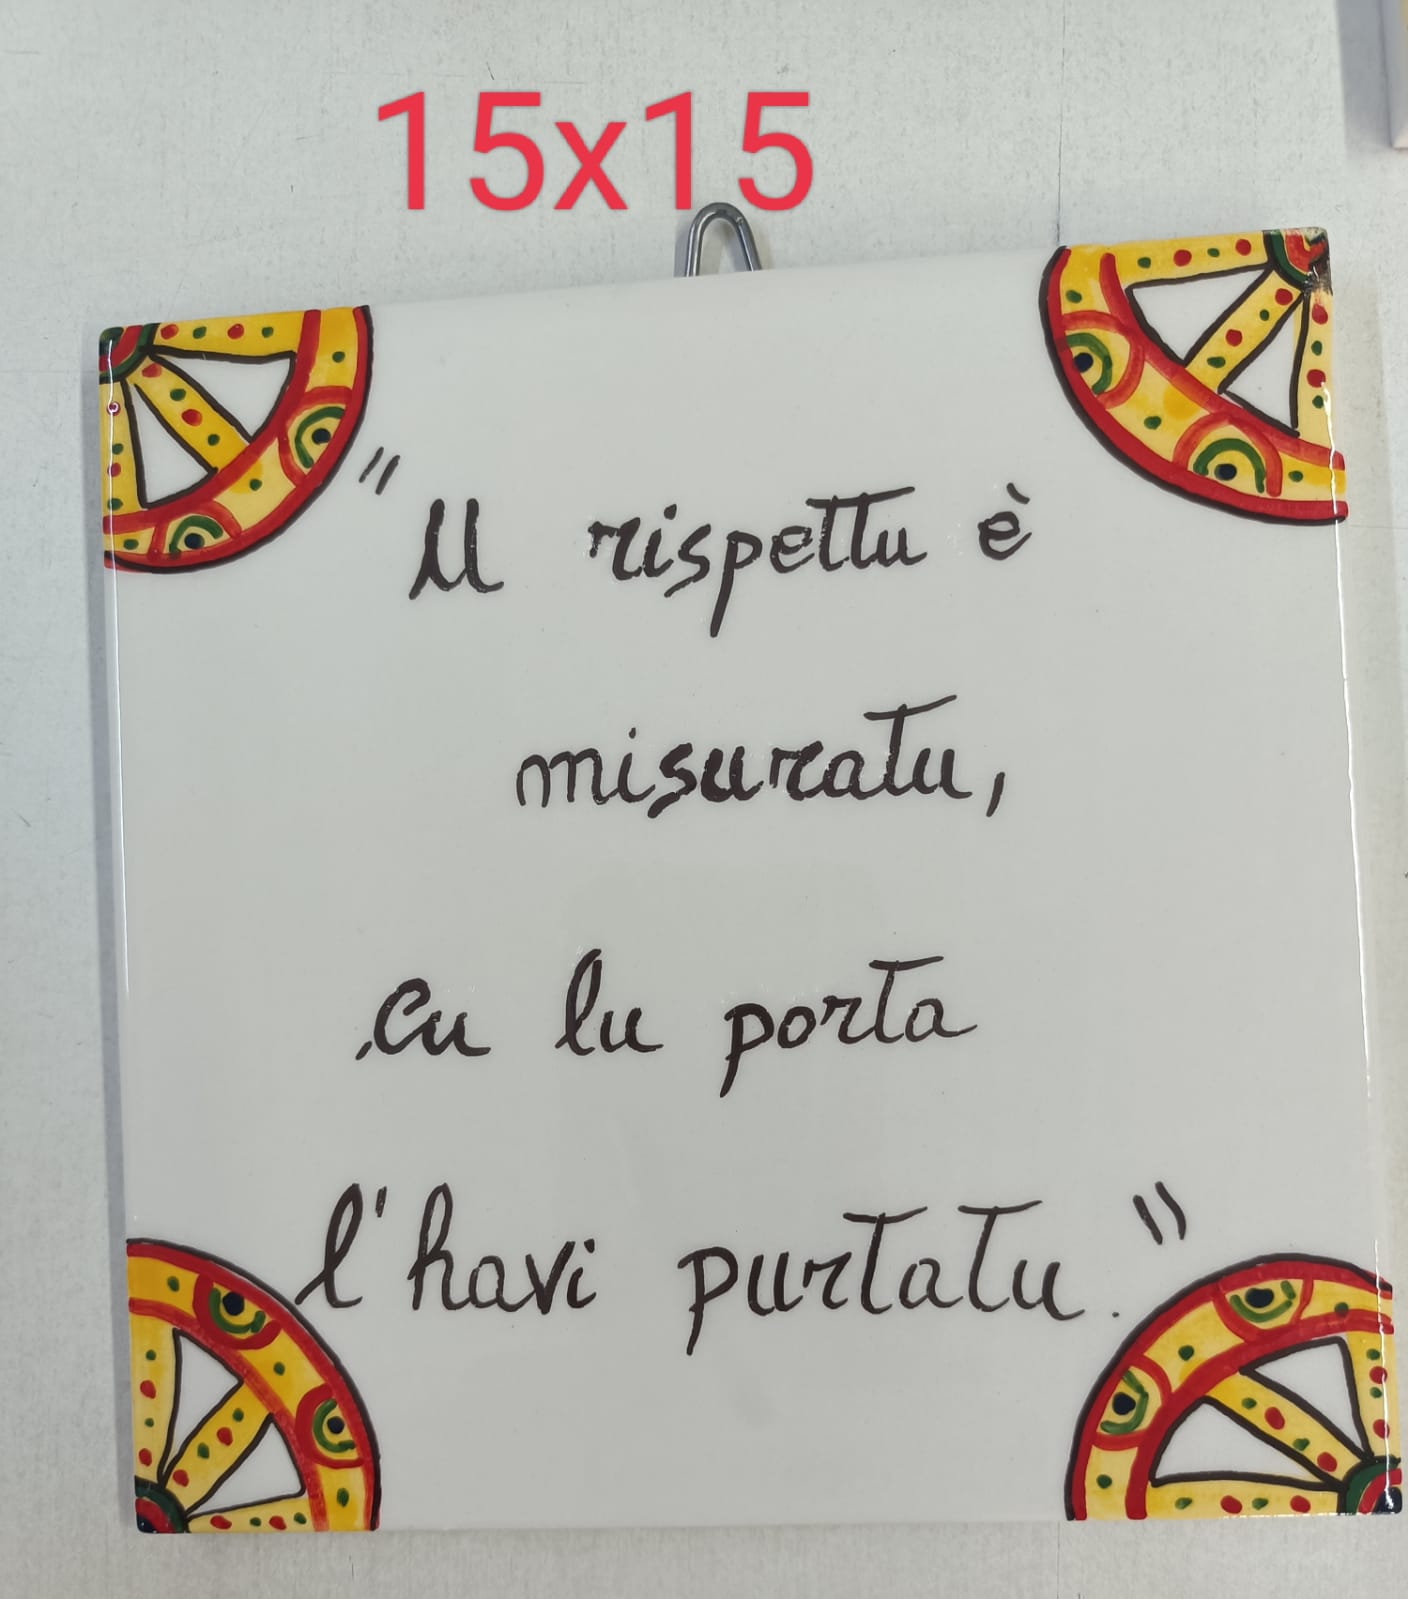 15x15
"U rispettu è
misuratu,
cu lu porta
l'havi purtatu."